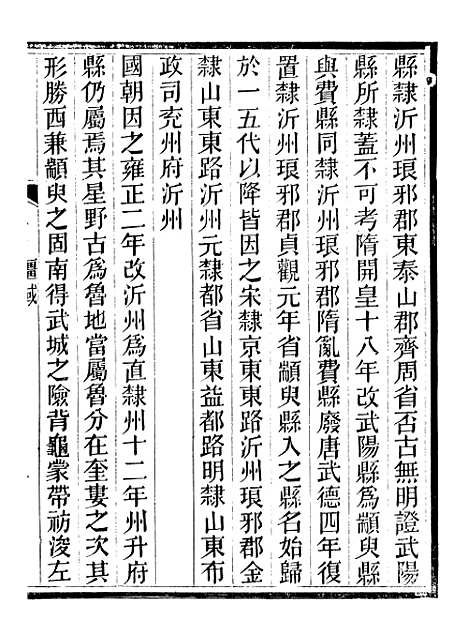 縣隸沂州琅邪郡東泰山郡齊周省否古無明證武陽
縣所隸蓋不可考隋開皇十八年改武陽縣爲顓臾縣
與費縣同隸沂州琅邪郡隋亂費縣廢唐武德四年復
置隸沂州琅邪郡貞觀元年省顓臾縣入之縣名始歸
於一五代以降皆因之宋隸京東東路沂州琅邪郡金
隸山東東路沂州元隸都省山東益都路明隸山東布
政司兖州府沂州
國朝因之雍正二年改沂州爲直隸州十二年州升府
縣仍屬焉其星野古爲魯地當屬魯分在奎婁之次其
形勝西兼顓臾之固南得武城之險背龜蒙帶祊浚左
疆域